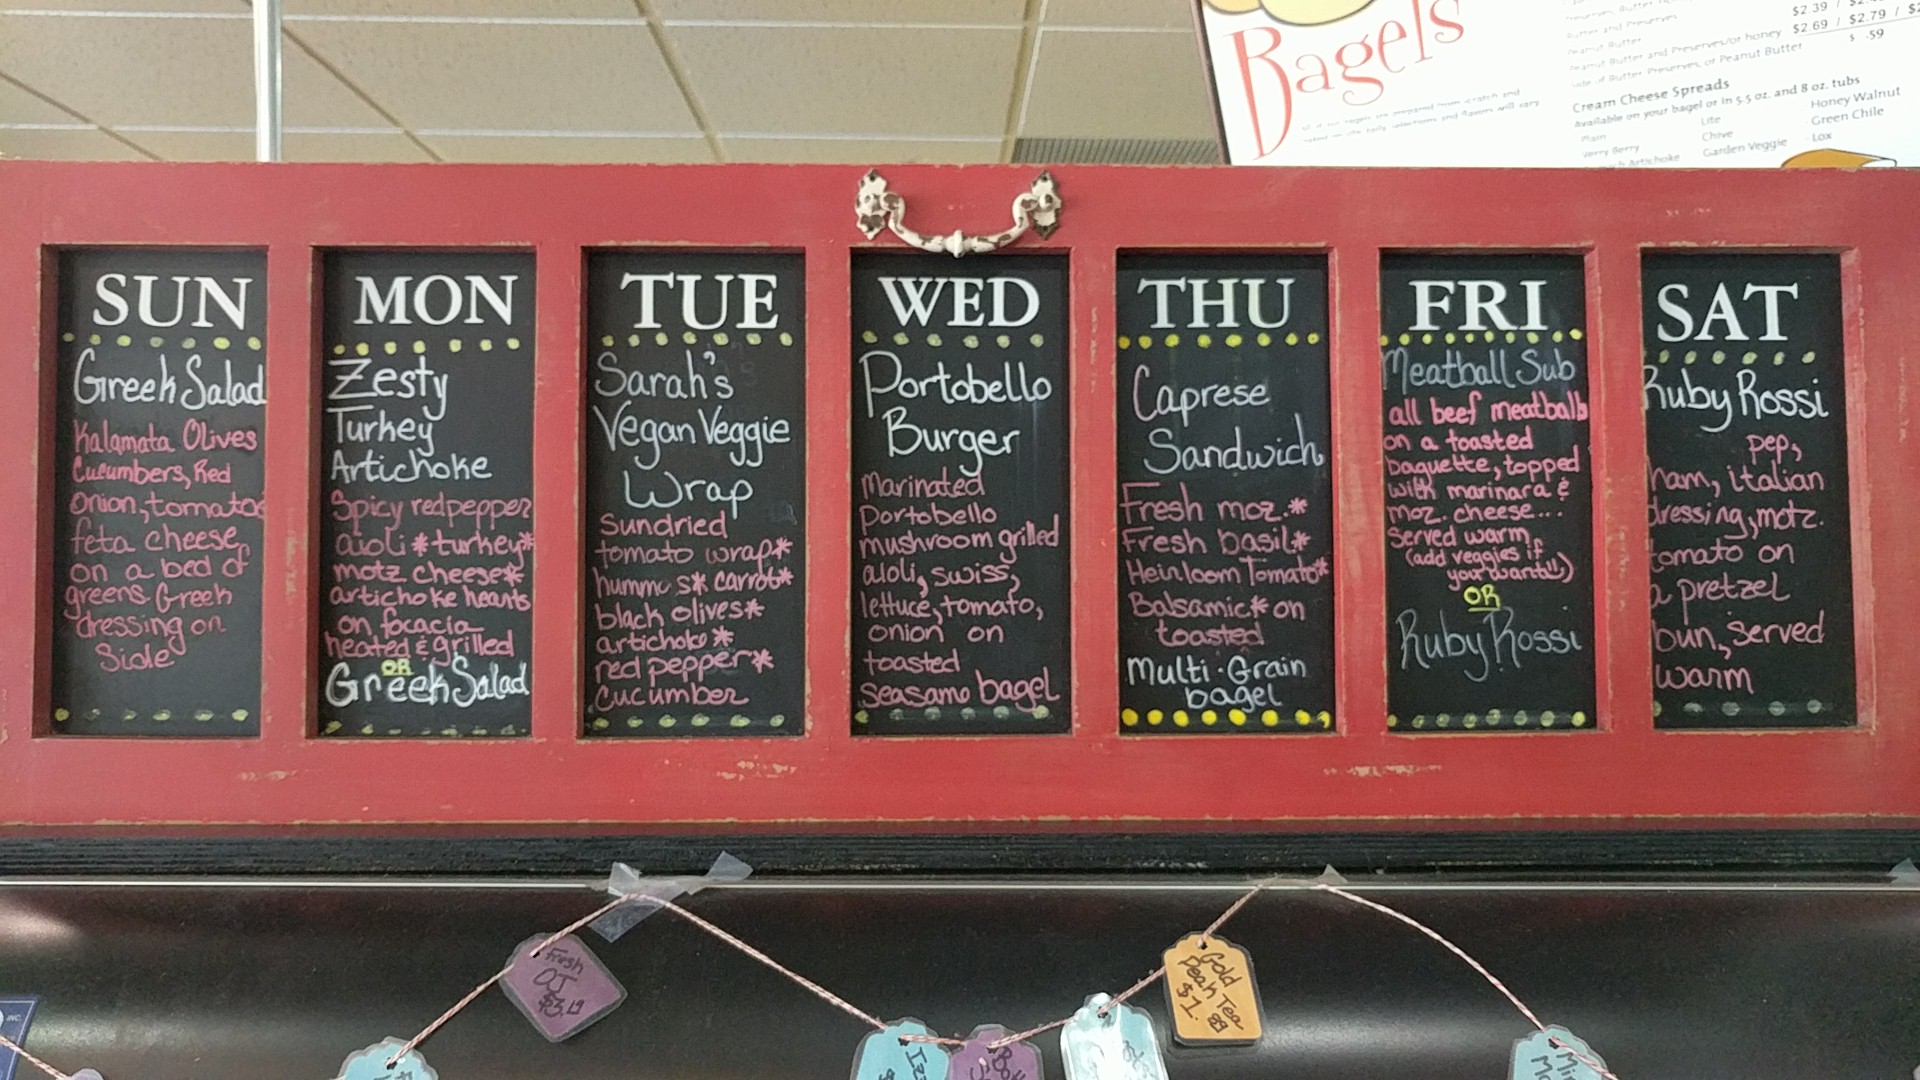 Bagels
Peanut Butter
Peanut Butter and Preserves/or honey
Side of Butter, Preserves, or Peanut Butter
$2.39 /
$2.69 / $2.79 /
$ .59
Cream Cheese Spreads
Available on your bagel or in 5.5 oz. and 8 oz. tubs
Plain
Very Berry
Artichoke
Lite
Chive
Garden Veggie
Honey Walnut
Green Chile
Lox
SUN
Greek Salad
Kalamata Olives
Cucumbers, Red
onion, tomatoe
feta cheese
on a bed of
greens Greek
dressing on
Side
MON
Zesty
Turkey
Artichoke
Spicy redpepper
aioli * turkey*
motz cheese*
artichoke hearts
on focacia
heated & grilled
OR
Greek Salad
TUE
Sarah's
Vegan Veggie
Wrap
Sundried
tomato wrap*
hummus* carrot*
black olives*
artichoke *
red pepper*
cucumber
WED
Portobello
Burger
Marinated
Portobello
mushroom grilled
aioli, swiss,
lettuce, tomato,
onion on
toasted
seasame bagel
THU
Caprese
Sandwich
Fresh moz.*
Fresh basil*
Heirloom Tomato*
Balsamic* on
toasted
Multi-Grain
bagel
FRI
Meatball Sub
all beef meatballs
on a toasted
baguette, topped
with marinara &
moz. cheese...
served warm
(add veggies if
your want!!)
OR
Ruby Rossi
SAT
Ruby Rossi
pep,
ham, italian
dressing, motz.
tomato on
a pretzel
bun, served
warm
Fresh
OJ
$3.19
Gold
Peak Tea
$1.89
INC.